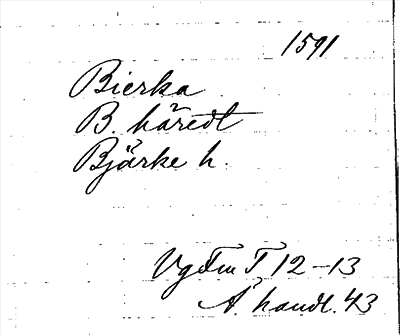 1591
Bierka
B. häredt
Bjärke h.
VgFmT 12-13
Å handl. 43